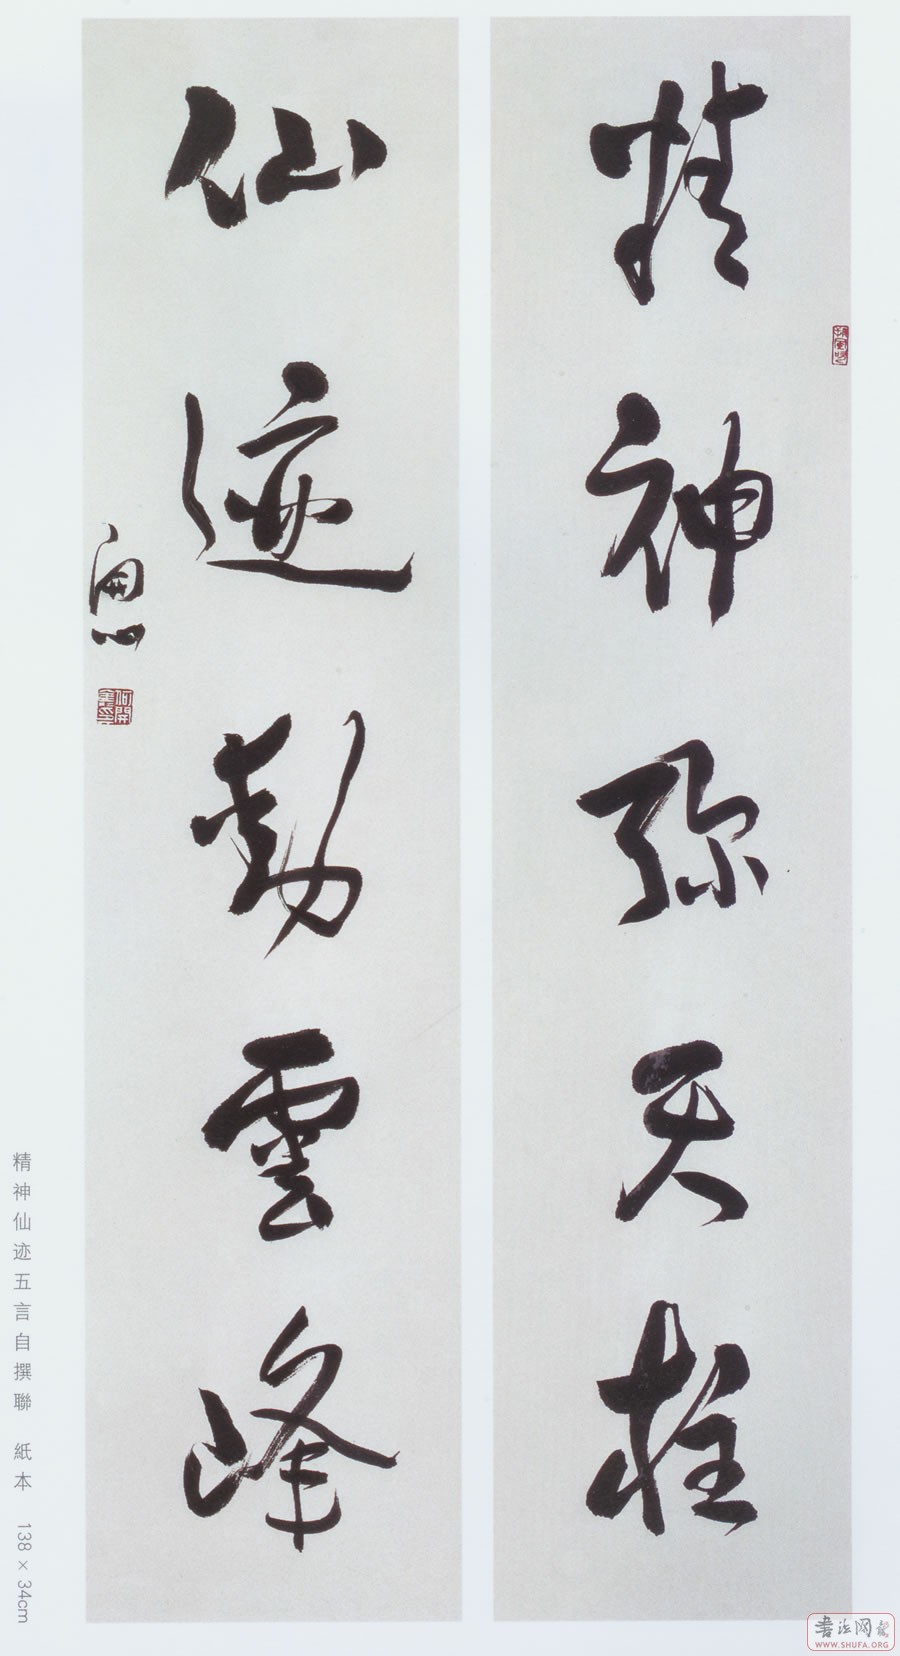 精神弥天柱
仙迹動雲峰
精神仙迹五言自撰聯　紙本　138 × 34cm
書法网
WWW.SHUFA.ORG